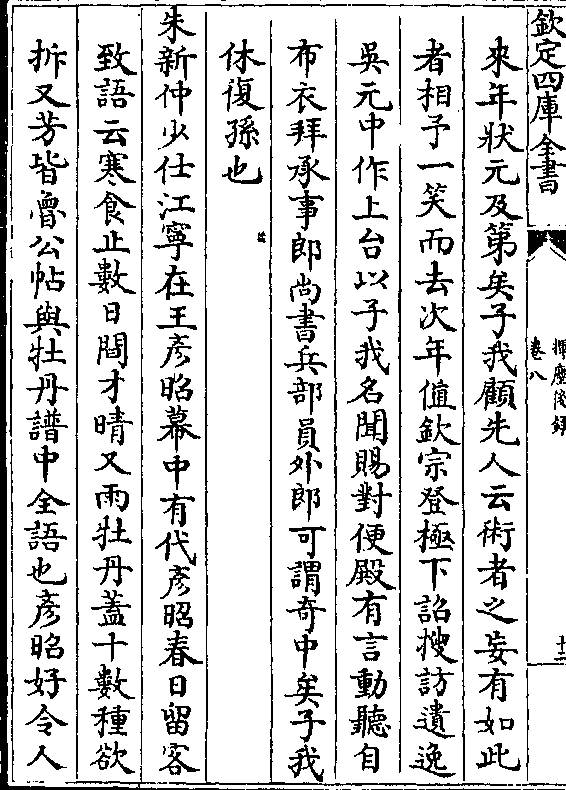 欽定四庫全書
揮麈後錄
卷八
十二
來年狀元及第矣子我顧先人云術者之妄有如此
者相予一笑而去次年值欽宗登極下詔搜訪遺逸
吳元中作上台以子我名聞賜對便殿有言動聽自
布衣拜承事郎尚書兵部員外郎可謂奇中矣子我
休復孫也
朱新仲少仕江寧在王彥昭幕中有代彥昭春日留客
致語云寒食止數日間才晴又雨牡丹蓋十數種欲
拆又芳皆魯公帖與牡丹譜中全語也彥昭好令人